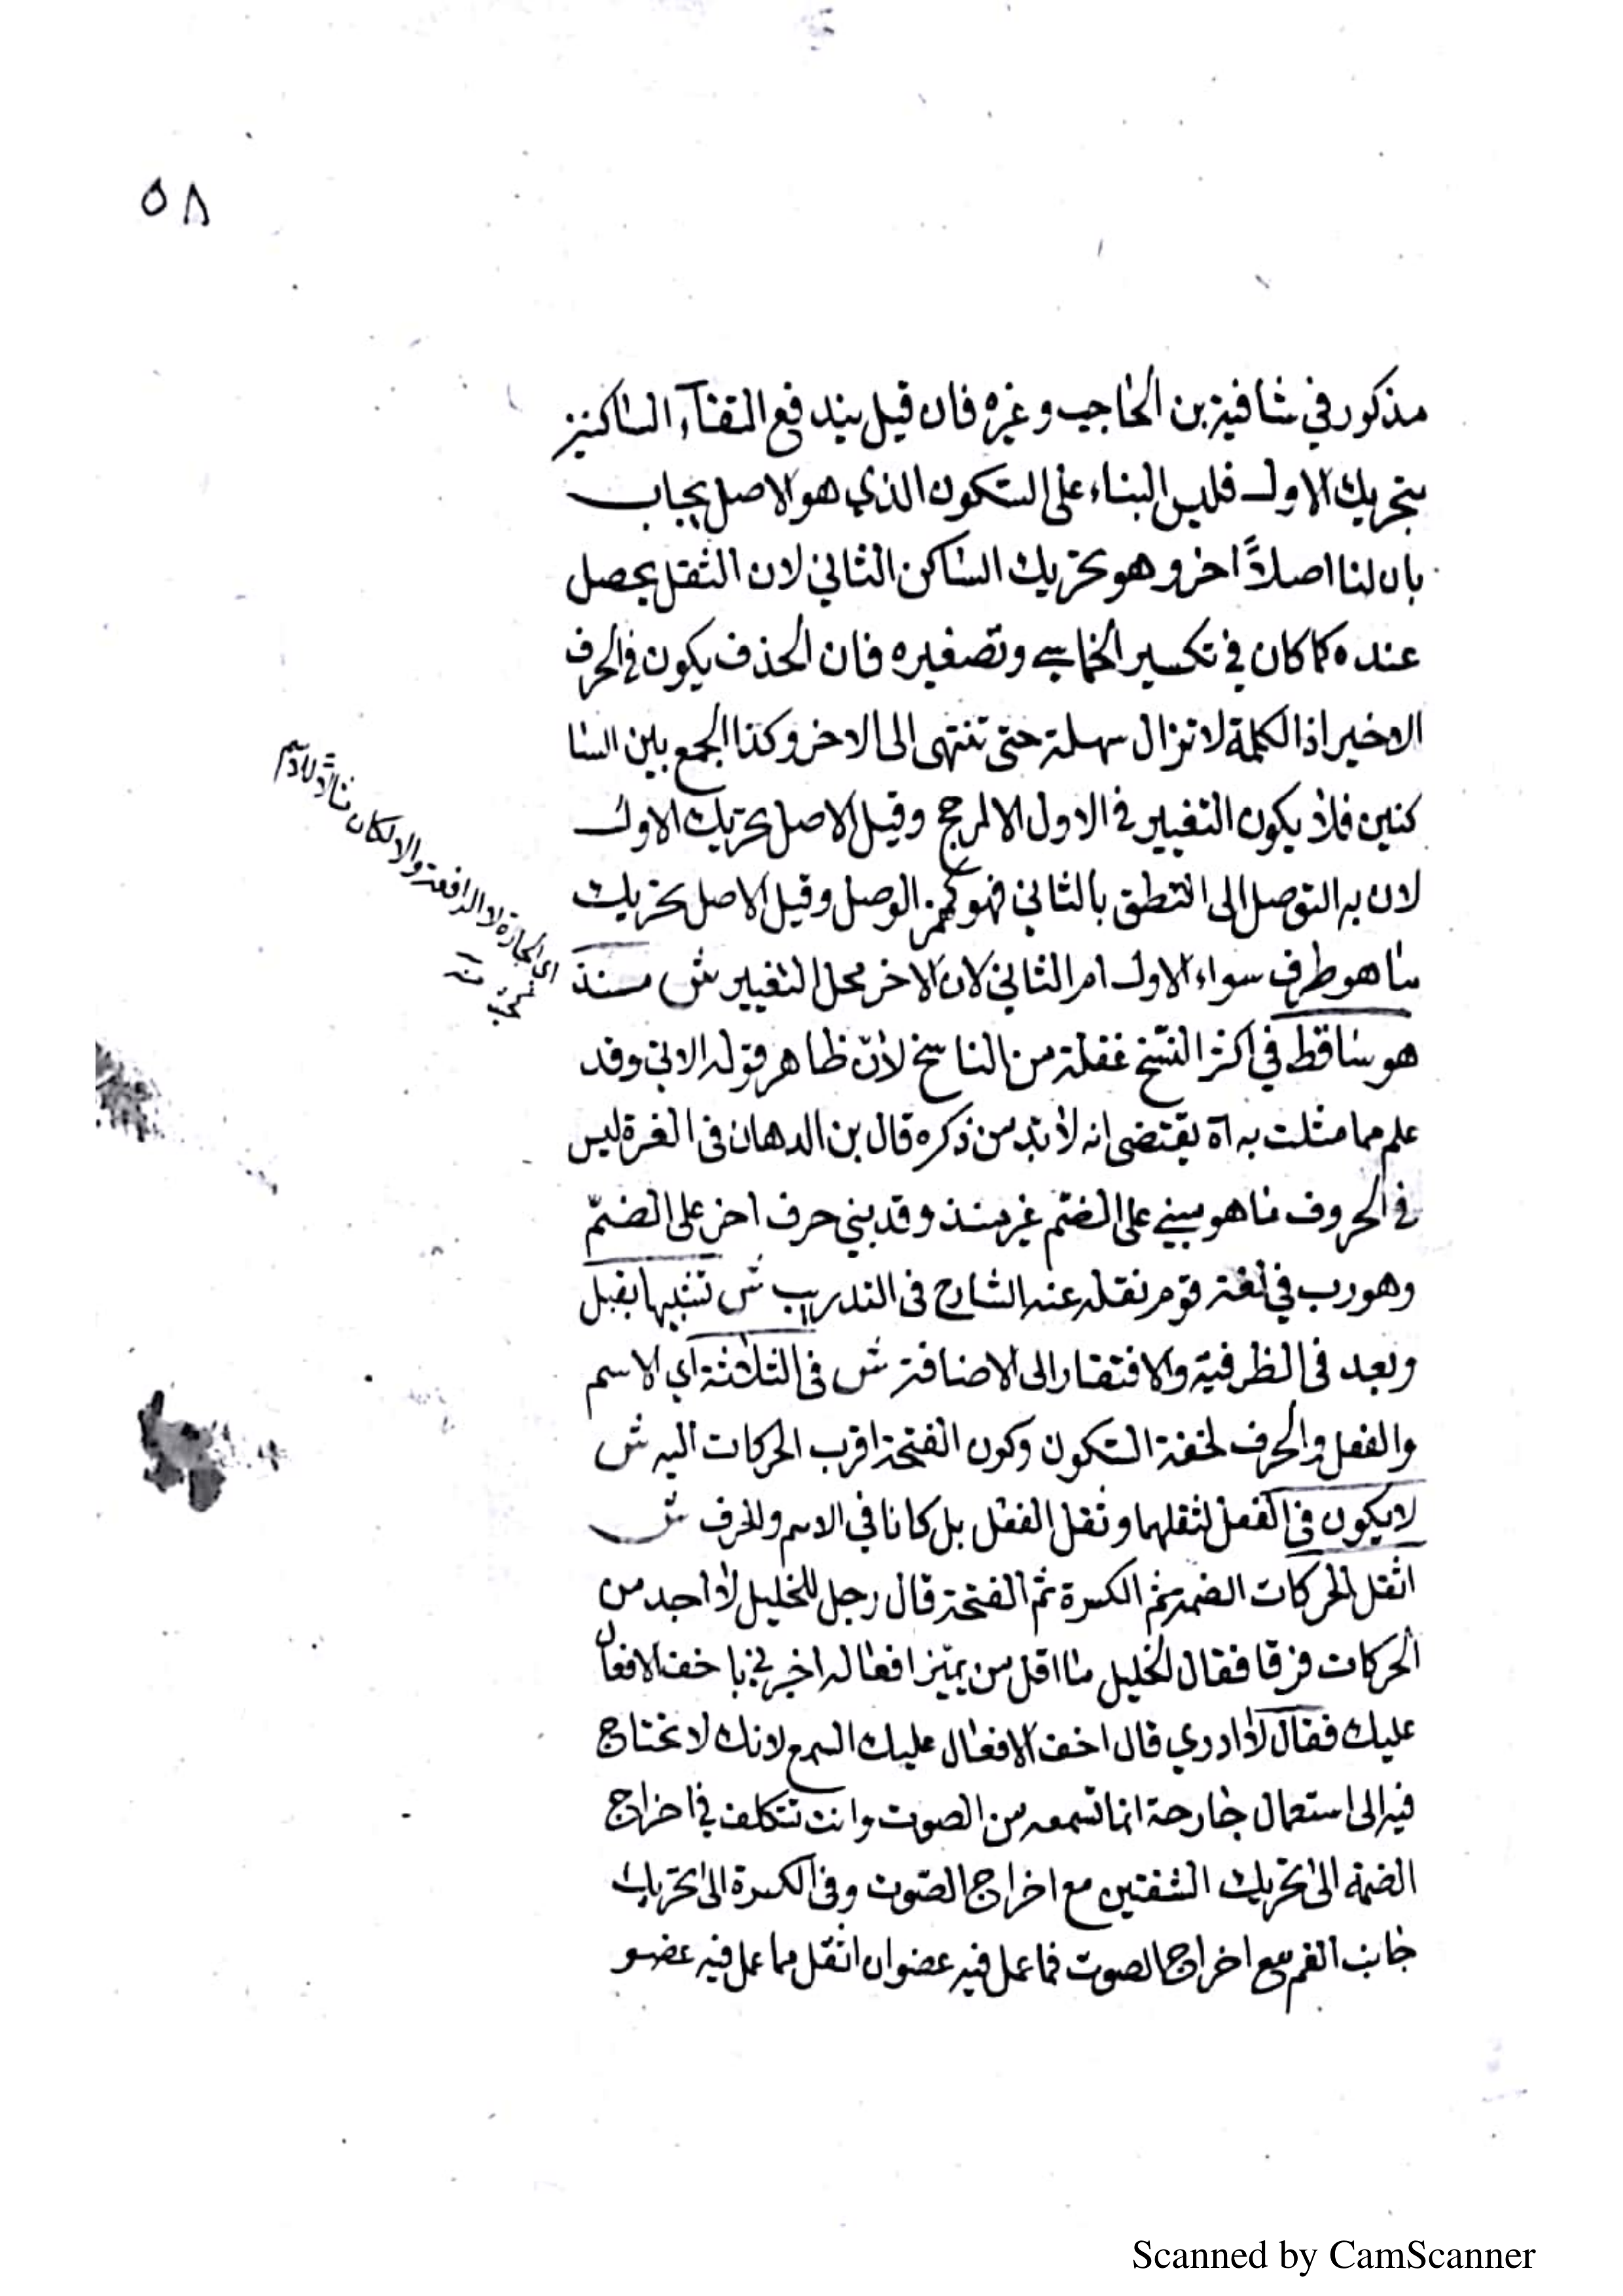 ٥٨
مذكور في شافية بن الحاجب وغيره فان قيل يندفع التقآء الساكنين
بتحريك الاول فليس البناء على السكون الذي هو الاصل يجاب
بان لنا اصلاً اخر وهو تحريك الساكن الثاني لان الثقل يحصل
عنده كما كان في تكسير الخماسي وتصغيره فان الحذف يكون في الحرف
الاخير اذ الكلمة لا تزال سهلة حتى تنتهى الى الاخر وكذا الجمع بين السا
كنين فلا يكون التغيير في الاول الا لمرجح وقيل الاصل تحريك الاول
لان به التوصل الى النطق بالثاني فهو كهمز الوصل وقيل الاصل تحريك
ما هو طرف سواء الاول ام الثاني لان الاخر محل التغيير ش منذ
اي الجارة لا الرافعة والا لكان
هو ساقط في اكثر النسخ غفلة من الناسخ لانّ ظاهر قوله الاتي وقد
علم مما مثلت به اه يقتضى انه لا بد من ذكره قال بن الدهان فى الغرة ليس
في الحروف ما هو مبني على الضم غير منذ وقد بني حرف اخر على الضمّ
وهو رب في لغة قوم نقله عنه الشارح فى التدريب ش تشبيها بقبل
وبعد فى الظرفية والافتقار الى الاضافة ش فى الثلاثة اي الاسم
والفعل والحرف لخفة السكون وكون الفتحة اقرب الحركات اليه ش
لا يكون فى الفعل لثقلهما وثقل الفعل بل كانا في الاسم والحرف ش
اثقل الحركات الضمة ثم الكسرة ثم الفتحة قال رجل للخليل لا اجد من
الحركات فرقا فقال الخليل ما اقل من يميّز افعاله اخبرني باخف الافعال
عليك فقال لا ادري قال اخف الافعال عليك السمع لانك لا تحتاج
فيه الى استعمال جارحة انما تسمعه من الصوت وانت تتكلف في اخراج
الضمة الى تحريك الشفتين مع اخراج الصوت وفى الكسرة الى تحريك
جانب الفم مع اخراج الصوت فما عمل فيه عضوان اثقل مما عمل فيه عضو
Scanned by CamScanner